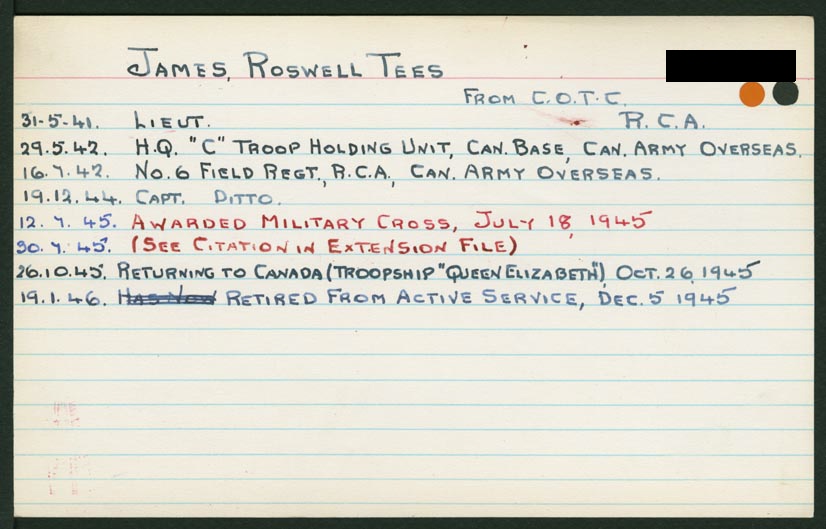 JAMES, ROSWELL TEES
FROM C.O.T.C.
31-5-41. LIEUT. R.C.A.
29.5.42. H.Q. "C" TROOP HOLDING UNIT, CAN. BASE, CAN. ARMY OVERSEAS.
16.7.42. NO. 6 FIELD REGT., R.C.A., CAN. ARMY OVERSEAS.
19.12.44. CAPT. DITTO.
12.7.45. AWARDED MILITARY CROSS, JULY 18, 1945
30.7.45. (SEE CITATION IN EXTENSION FILE)
26.10.45. RETURNING TO CANADA (TROOPSHIP "QUEEN ELIZABETH"), OCT. 26, 1945
19.1.46. HAS NOW RETIRED FROM ACTIVE SERVICE, DEC. 5 1945